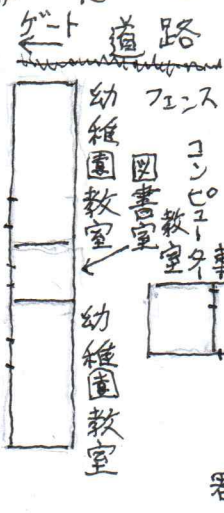 ゲート
道路
フェンス
幼稚園教室
図書室
コンピューター
教室
幼稚園教室